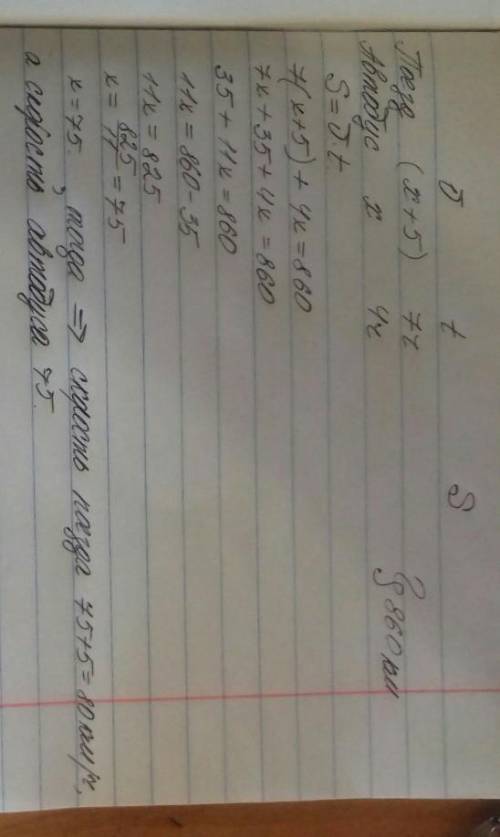 v t S
Поезд (x+5) 7ч
Автобус x 4ч } 860 км
S=v·t
7(x+5)+4x=860
7x+35+4x=860
35+11x=860
11x=860-35
11x=825
x=825/11=75
x=75, тогда ⇒ скорость поезда 75+5=80 км/ч,
а скорость автобуса 75.